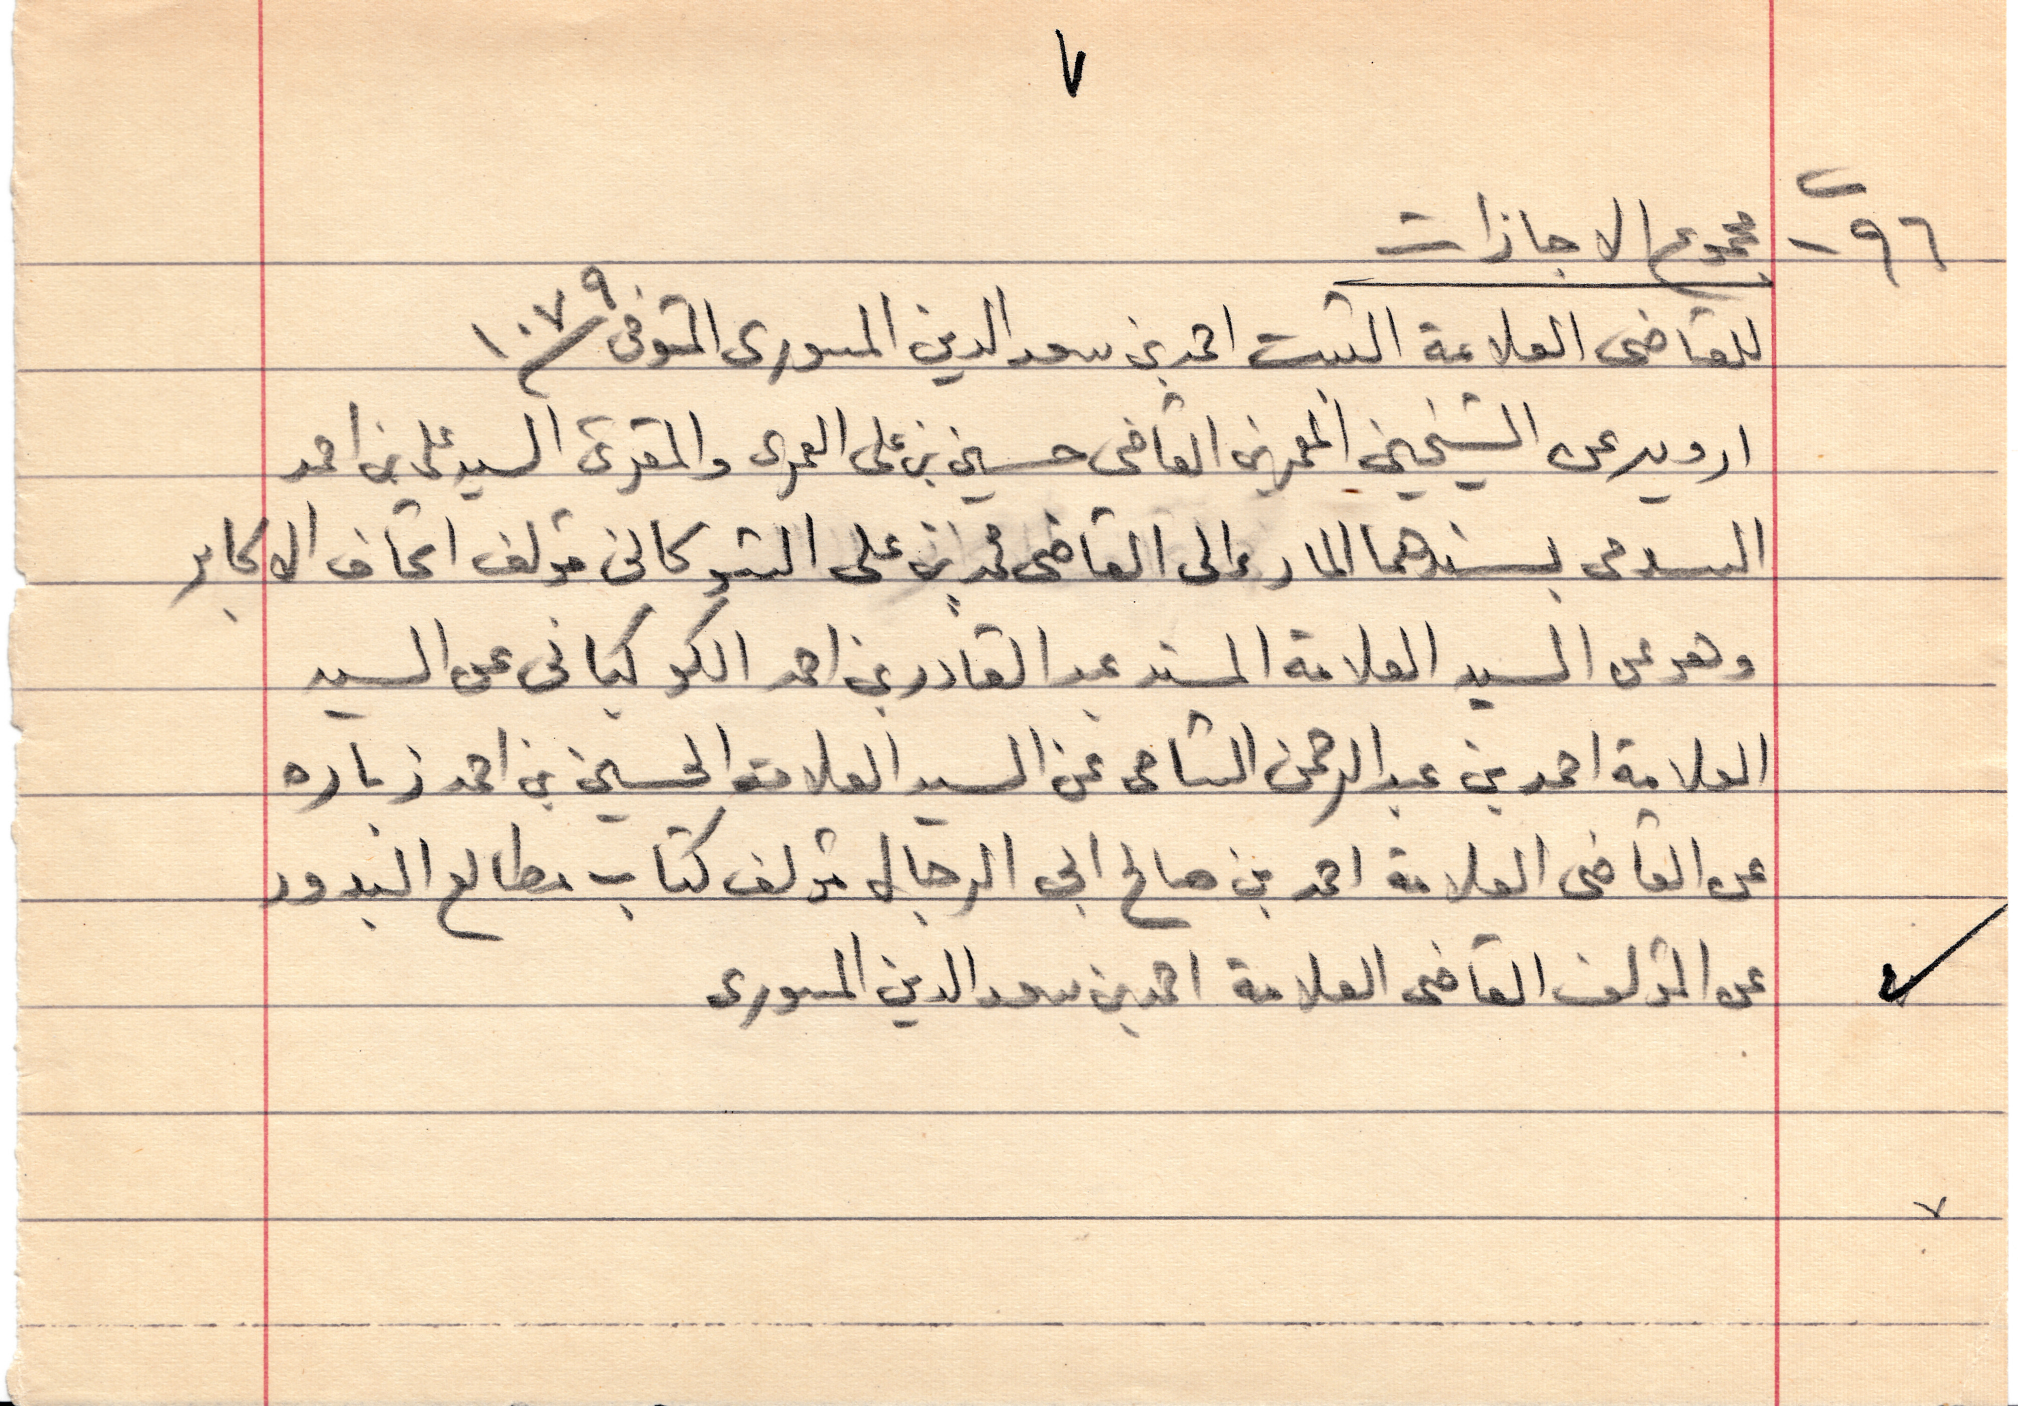 ٧
٩٦ - مجموع الاجازات
للقاضى العلامة الثبت احمد بن سعد الدين المسورى المتوفى ١٠٧٩
ارويه عن الشيخين المعمرين القاضى حسين بن على العمرى والمقرئ السيد على بن احمد
السدمى بسندهما المار الى القاضى محمد بن على الشوكانى مؤلف اتحاف الاكابر
وهو عن السيد العلامة المسند عبد القادر بن احمد الكوكبانى عن السيد
العلامة احمد بن عبد الرحمن الشامى عن السيد العلامة الحسين بن احمد زباره
عن القاضى العلامة احمد بن صالح ابى الرجال مؤلف كتاب مطالع البدور
عن المؤلف القاضى العلامة احمد بن سعد الدين المسورى
٧